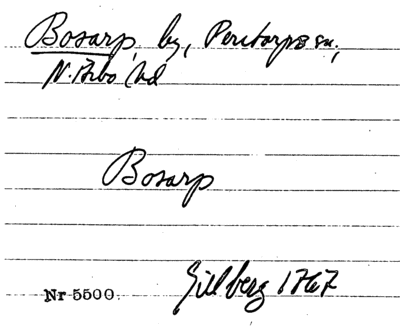 Bosarp, by, Perstorps sn,
N. Åsbo hd
Bosarp
Gillberg 1767
Nr 5500.